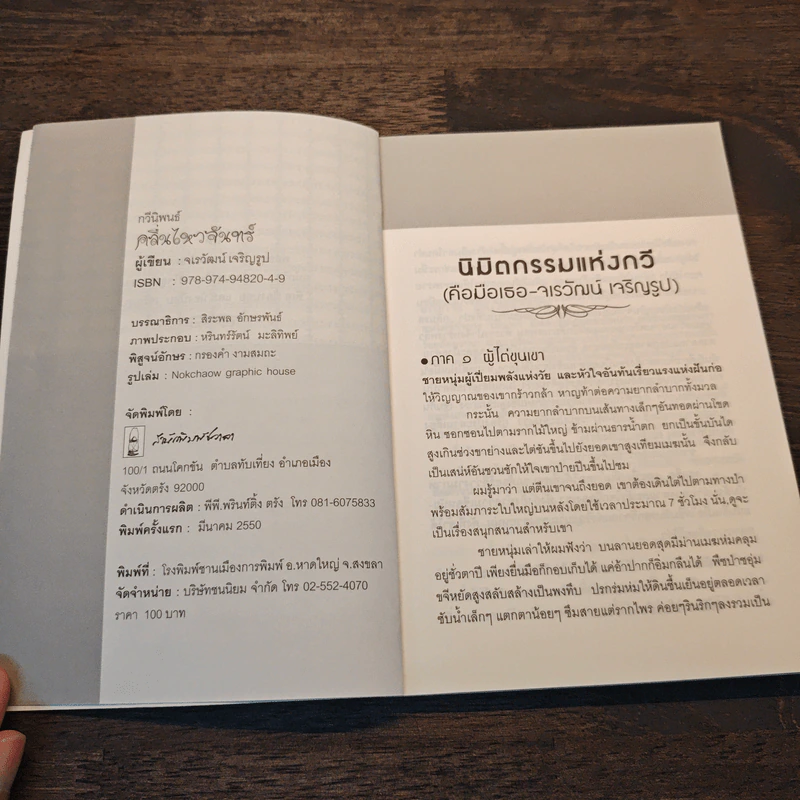 กวีนิพนธ์
คลื่นไหวจันทร์
ผู้เขียน : จเรวัฒน์ เจริญรูป
ISBN : 978-974-94820-4-9
บรรณาธิการ : สิระพล อักษรพันธ์
ภาพประกอบ : หรินทร์รัตน์ มะลิทิพย์
พิสูจน์อักษร : กรองคำ งามสมถะ
รูปเล่ม : Nokchaow graphic house
จัดพิมพ์โดย :
100/1 ถนนโคกขัน ตำบลทับเที่ยง อำเภอเมือง
จังหวัดตรัง 92000
ดำเนินการผลิต : พีพี.พรินท์ติ้ง ตรัง โทร 081-6075833
พิมพ์ครั้งแรก : มีนาคม 2550
พิมพ์ที่ : โรงพิมพ์ชานเมืองการพิมพ์ อ.หาดใหญ่ จ.สงขลา
จัดจำหน่าย : บริษัทชนนิยม จำกัด โทร 02-552-4070
ราคา 100 บาท
นิมิตกรรมแห่งกวี
(คือมือเธอ-จเรวัฒน์ เจริญรูป)
●ภาค ๑ ผู้ไต่ขุนเขา
ชายหนุ่มผู้เปี่ยมพลังแห่งวัย และหัวใจอันทันเรี่ยวแรงแห่งฝันก่อ
ให้วิญญาณของเขากร้าวกล้า หาญท้าต่อความยากลำบากทั้งมวล
กระนั้น ความยากลำบากบนเส้นทางเล็กๆอันทอดผ่านโขด
หิน ซอกซอนไปตามรากไม้ใหญ่ ข้ามผ่านธารน้ำตก ยกเป็นชั้นบันได
สูงเกินช่วงขาย่างและไต่ชันขึ้นไปยังยอดเขาสูงเทียมเมฆนั้น จึงกลับ
เป็นเสน่ห์อันชวนชักให้ใจเขาป่ายปีนขึ้นไปชม
ผมรู้มาว่า แต่ตีนเขาจนถึงยอด เขาต้องเดินไต่ไปตามทางป่า
พร้อมสัมภาระใบใหญ่บนหลังโดยใช้เวลาประมาณ 7 ชั่วโมง นั่น.ดูจะ
เป็นเรื่องสนุกสนานสำหรับเขา
ชายหนุ่มเล่าให้ผมฟังว่า บนลานยอดสุดมีม่านเมฆห่มคลุม
อยู่ชั่วตาปี เพียงยื่นมือก็กอบเก็บได้ แค่อ้าปากก็อิ่มกลืนได้ พืชป่าชอุ่ม
ขจีหยัดสูงสลับสล้างเป็นพงทึบ ปรกร่มห่มให้ดินชื้นเย็นอยู่ตลอดเวลา
ซับน้ำเล็กๆ แตกตาน้อยๆ ซึมสายแต่รากไพร ค่อยๆรินริกๆลงรวมเป็น